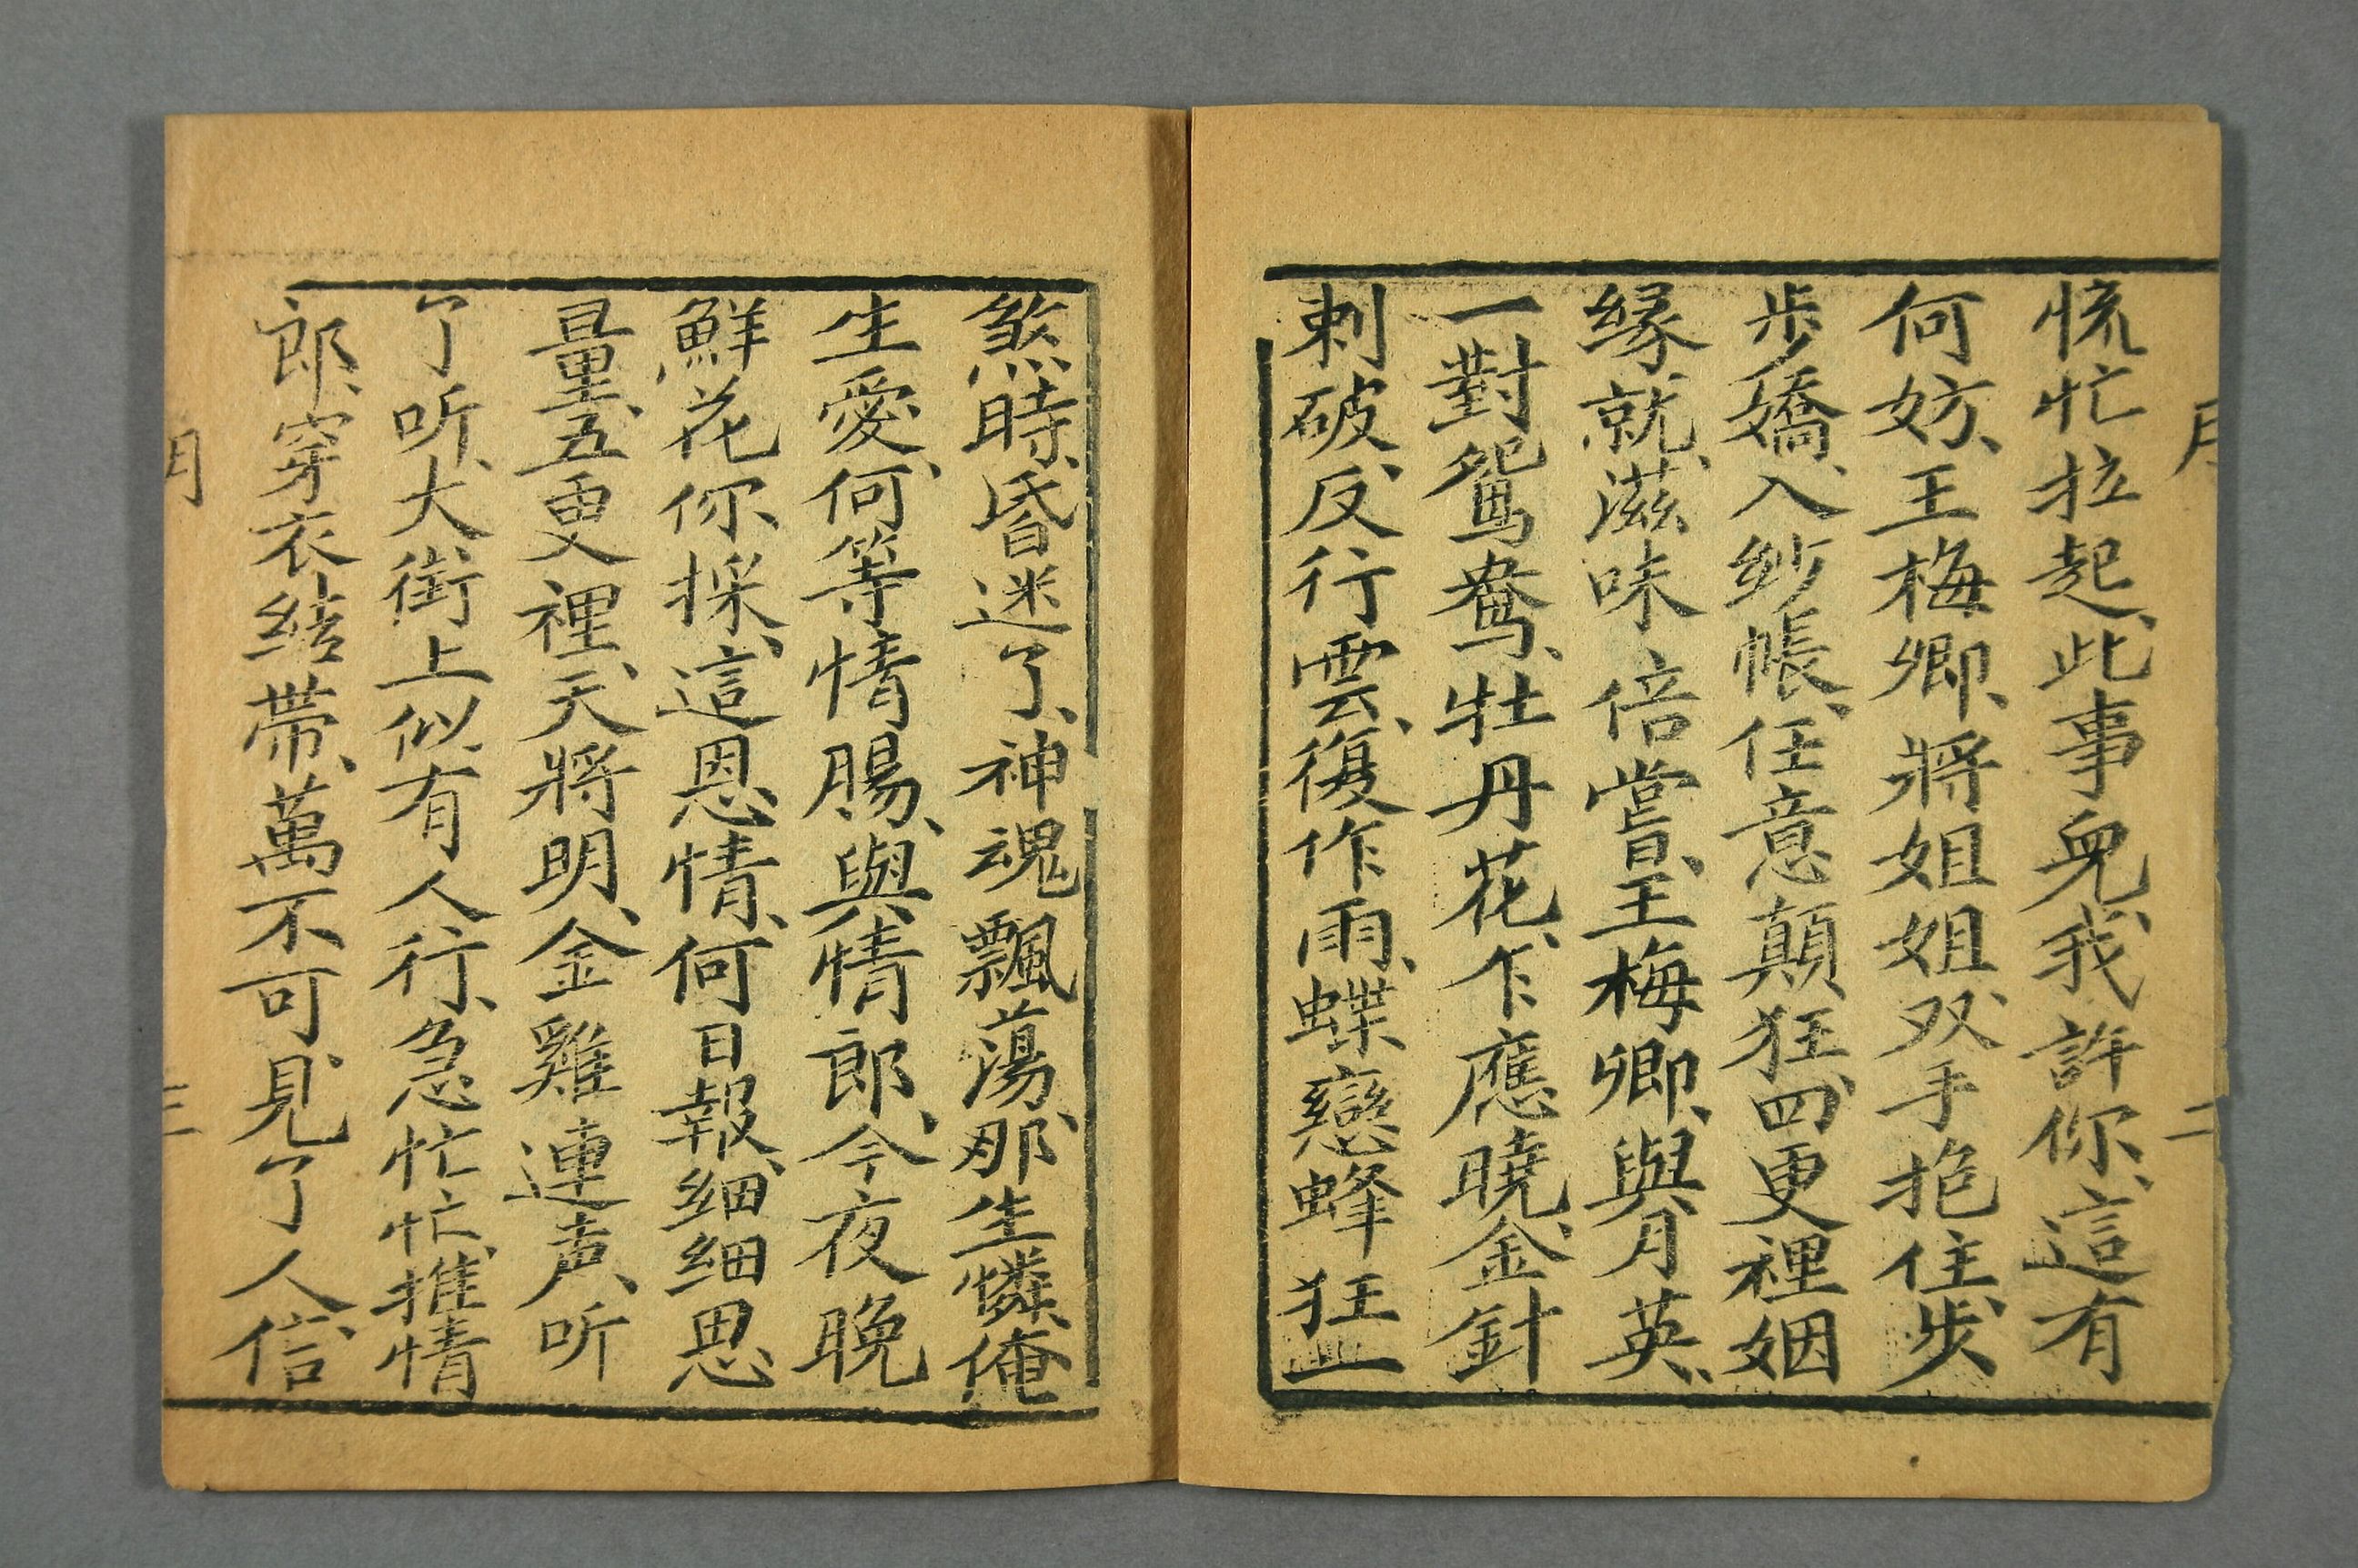 慌忙拉起、此事兒、我許你、這有
何妨、王梅卿、將姐姐、双手抱住、步
步嬌、入紗帳、任意顛狂、四更裡姻
縁就、滋味倍嘗、王梅卿、與月英、
一對鴛鴦、牡丹花、乍應曉、金針
刺破、反行雲、復作雨、蝶戀蜂狂一
煞時、昏迷了、神魂飄蕩、那生憐、俺
生愛、何等情腸、與情郎、今夜晚
鮮花你採、這恩情、何日報、細細思
量、五更裡、天將明、金雞連声、听
了听、大街上、似有人行、急忙忙、推情
郎、穿衣结带、萬不可、見了人、信
月 二
月 三